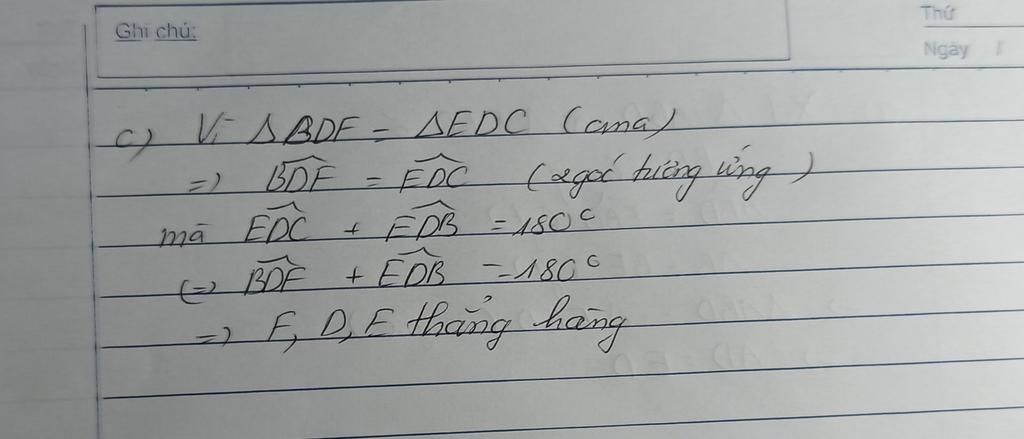 Ghi chú:
Thứ
Ngày
c) Vì ΔBDF = ΔEDC (cma)
=> \widehat{BDF} = \widehat{EDC} (2 góc tương ứng)
mà \widehat{EDC} + \widehat{EDB} = 180°
(=) \widehat{BDF} + \widehat{EDB} = 180°
=> F, D, E thẳng hàng